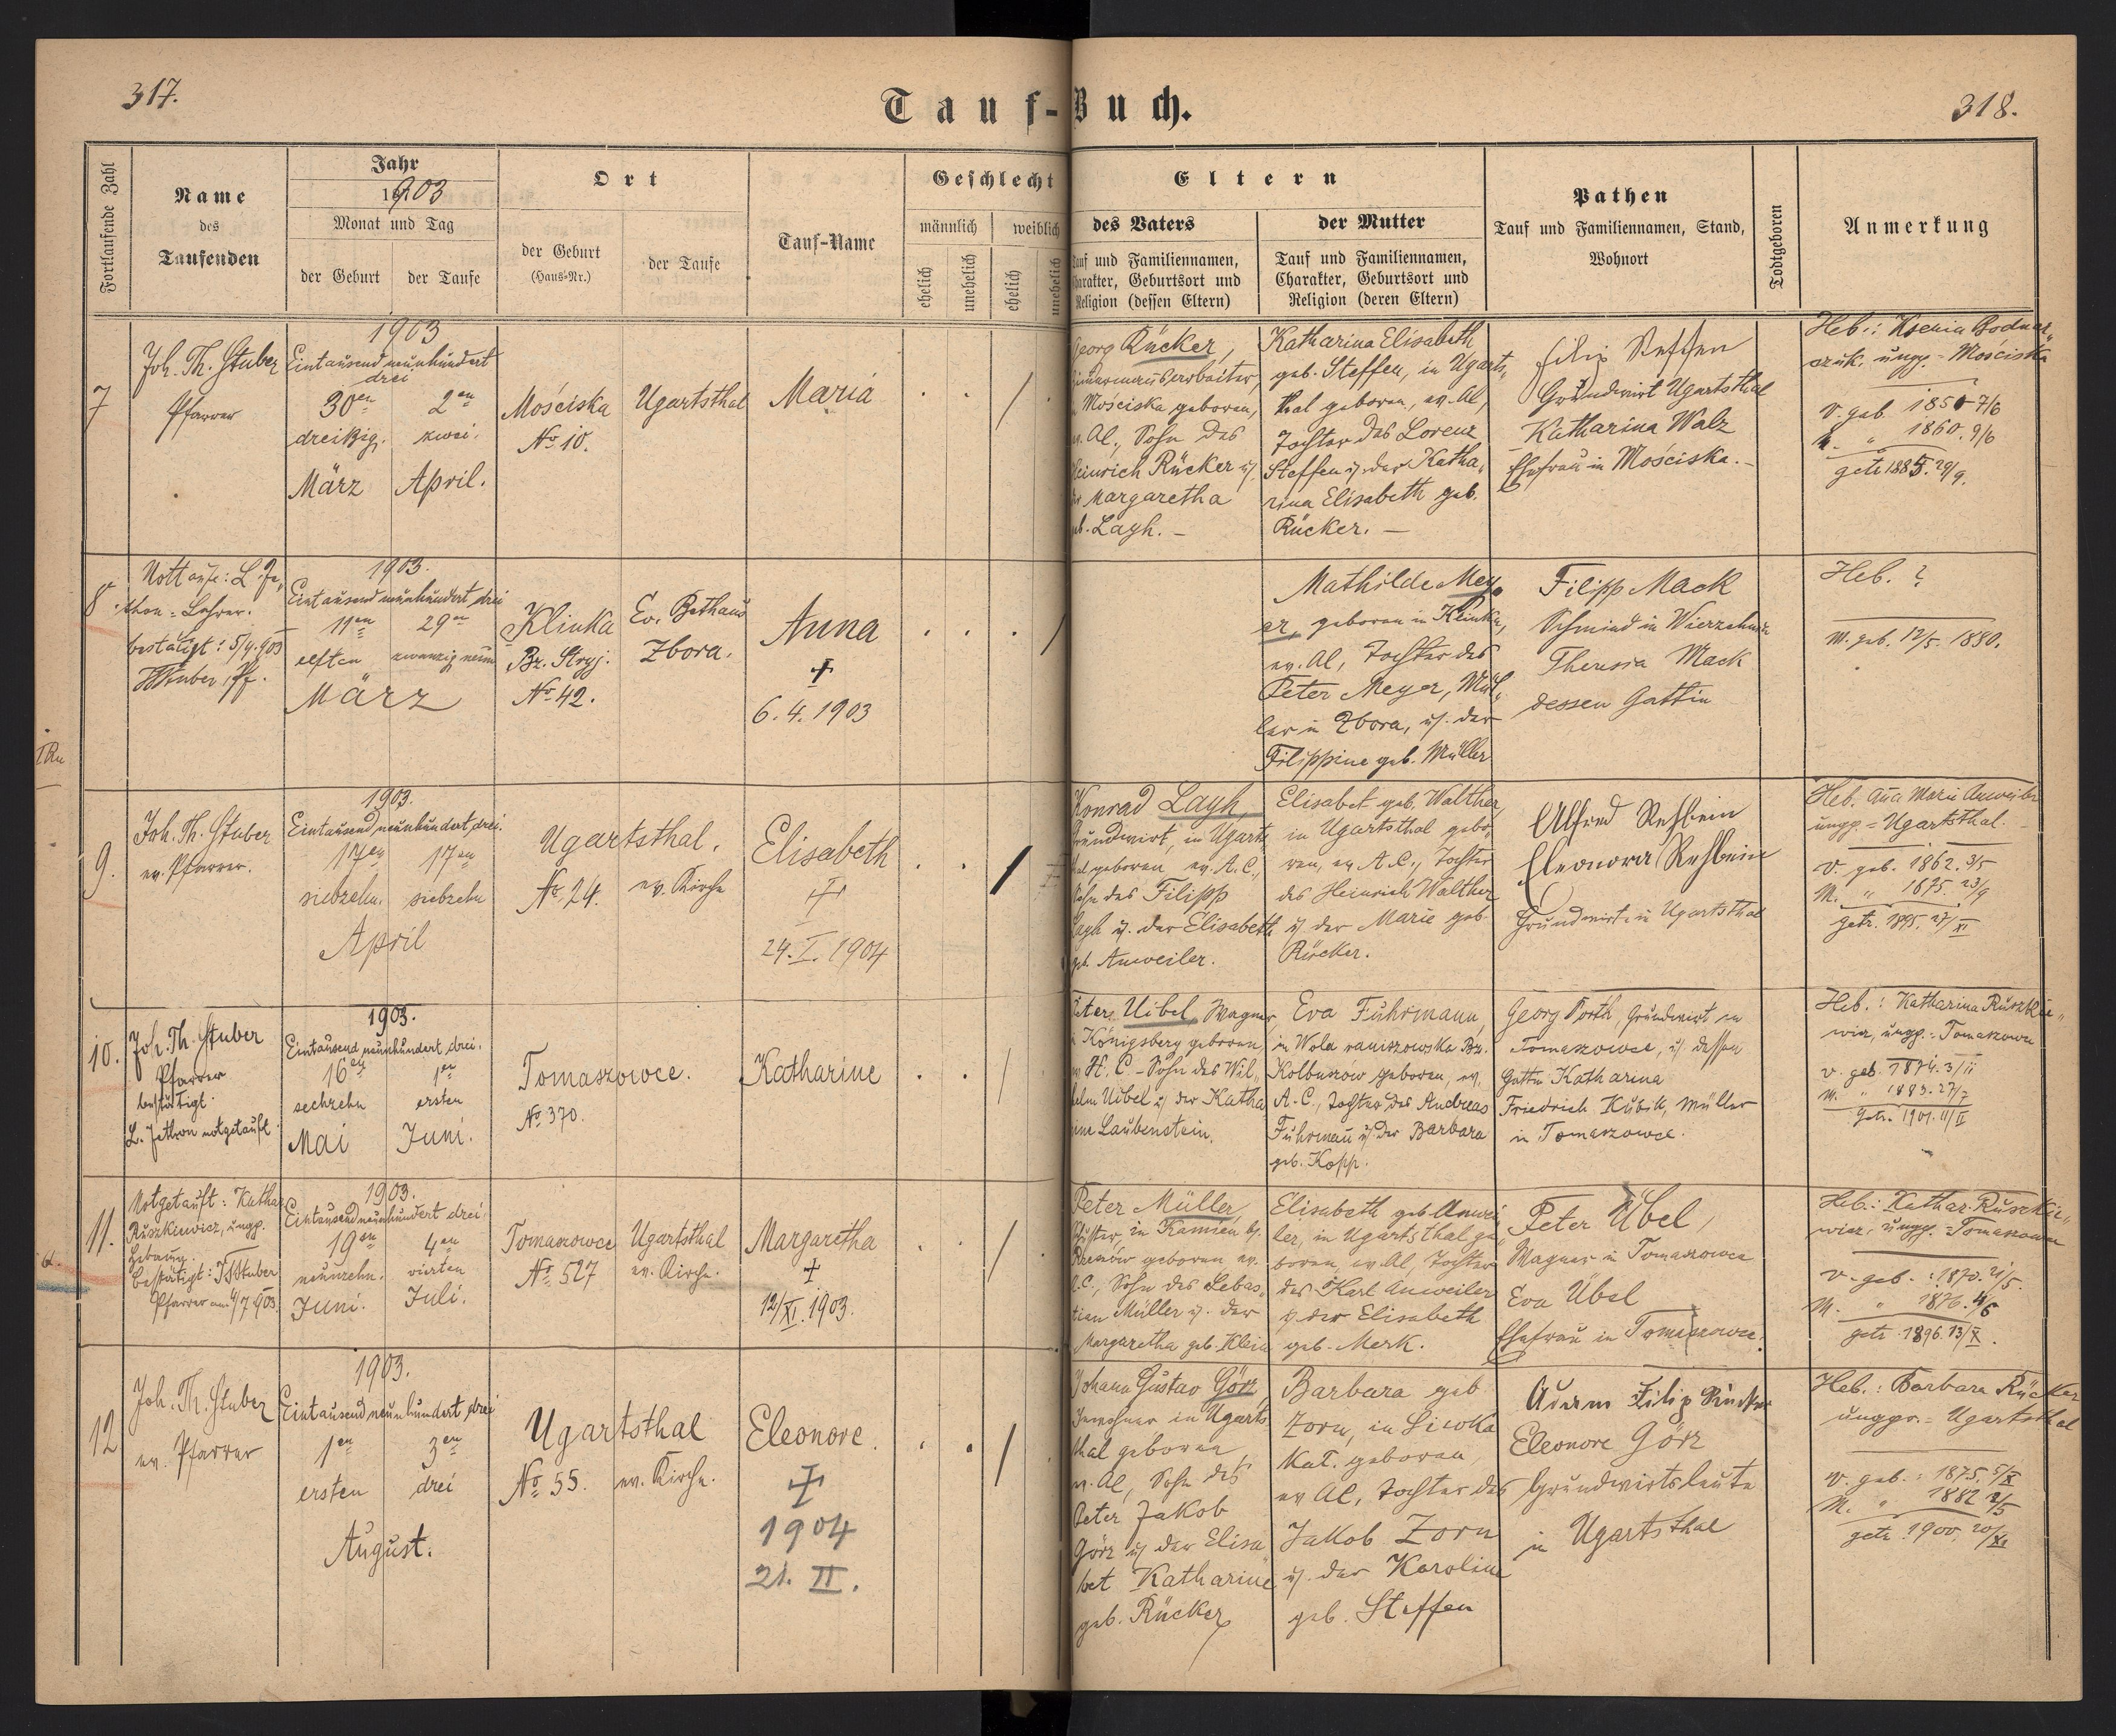 317.
Tauf-Buch.
318.
Fortlaufende Zahl
Name
des
Taufenden
Jahr
1903
Monat und Tag
der Geburt
der Taufe
Ort
der Geburt
(Haus-Nr.)
der Taufe
Tauf-Name
Geschlecht
männlich
weiblich
ehelich
unehelich
ehelich
unehelich
Eltern
des Vaters
Tauf und Familiennamen,
Charakter, Geburtsort und
Religion (dessen Eltern)
der Mutter
Tauf und Familiennamen,
Charakter, Geburtsort und
Religion (deren Eltern)
Pathen
Tauf und Familiennamen, Stand,
Wohnort
Todtgeboren
Anmerkung
7
Joh. Th. Stuber
Pfarrer
1903
Eintausend neunhundert
drei
30en
dreißig.
März
2en
zwei.
April.
Mościska
No 10.
Ugartsthal
Maria
Georg Rücker,
Mościska geboren,
Al., Sohn des
Heinrich Rücker u.
der Margaretha
geb. Layh. -
Katharina Elisabeth
geb. Steffen, in Ugarts„
thal geboren, ev. Al,
Tochter des Lorenz
Steffen u. der Katha„
rina Elisabeth geb.
Rücker. -
Filip Steffen
Grundwirt Ugartsthal
Katharina Walz
Ehefrau in Mościska. -
Heb.: Ksenia Bodnar„
czuk. ungp. = Mościska
V. geb. 1850 7/6
M. " 1860. 9/6
getr. 1885. 29/9.
8
Nottaufe: L. Je„
thon = Lehrer.
bestätigt: 5/4.903
JThStuber, Pf.
1903.
Eintausend neunhundert drei
11en
elften
29en
zwanzig neun
März
Klinka
Bz. Stryj.
No 42.
Ev. Bethaus
Zbora.
Anna
†
6. 4. 1903
Mathilde Mey„
er, geboren in Klinka,
ev. Al, Tochter des
Peter Meyer, Mül„
ler in Zbora, u. der
Filippine geb. Müller
Filipp Mack
Schmied in
Theresia Mack
dessen Gattin
Heb. ?
M. geb. 12/5. 1880.
9.
Joh. Th. Stuber
ev. Pfarrer.
1903.
Eintausend neunhundert drei.
17en
siebzehn.
17en
siebzehn
April
Ugartsthal.
No 24.
ev. Kirche
Elisabeth
†
24. I. 1904
Konrad Layh,
Grundwirt, in Ugarts
thal geboren ev. A.C.,
Sohn des Filipp
Layh u. der Elisabeth
geb. Anweiler.
Elisabet geb. Walther,
in Ugartsthal gebo„
ren, ev. A.C., Tochter
des Heinrich Walther
u. der Marie geb.
Rücker.
Alfred Rehbein
Eleonora Rehbein
Grundwirt. in Ugartsthal
Heb. Ana Marie Anweiler
ungp. = Ugartsthal.
V. geb. 1862. 3/5
M. " 1875. 23/9
getr. 1895. 27/XI
10.
Joh. Th. Stuber
Pfarrer
bestätigt.
L. Jethon notgetauft
1903.
Eintausend neunhundert drei.
16en
sechzehn
Mai
1en
ersten
Juni.
Tomaszowce.
No 370.
Katharine
Peter Uibel, Wagner
in Königsberg geboren
H. C - Sohn des Wil„
helm Uibel u. der Katha
rine Laubenstein.
Eva Fuhrmann,
in Wola raniszowska Bz.
Kolbuszow geboren, ev.
A.C., Tochter des Andreas
Fuhrmañ u. der Barbara
geb. Kopp.
Georg Porth, Grundwirt in
Tomaszowce, u. dessen
Gattin Katharina
Friedrich Kubik, Müller
in Tomaszowce.
Heb.: Katharina Ruszkie„
wicz, ungp. - Tomaszowce
V. geb. 1874. 3/II
M. " 1883. 27/7
getr. 1901. 11/II
11.
Notgetauft: Kathar.
Ruszkiewicz, ungp.
Hebamme.
bestätigt: JThStuber
Pfarrer am 4/7 903.
1903.
Eintausend neunhundert drei.
19en
neunzehn.
Juni.
4en
vierten
Juli.
Tomaszowce
No 527
Ugartsthal
ev. Kirche.
Margaretha
†
12/XI. 1903.
Peter Müller,
in Kamień bz.
geboren ev.
A.C., Sohn des Sebas„
tian Müller u. der
Margaretha geb. Klein
Elisabeth geb. Anwei
ler, in Ugartsthal ge„
boren, ev. Al, Tochter
des Karl Anweiler
u. der Elisabeth
geb. Merk.
Peter Übel,
Wagner in Tomaszowce
Eva Übel
Ehefrau in Tomaszowce.
Heb.: Kathar. Ruszkie„
wicz, ungp. = Tomaszowce
V. geb. : 1870. 21/5.
M. " 1876. 4/6
getr. 1896. 13/X.
12
Joh. Th. Stuber
ev. Pfarrer
1903.
Eintausend neunhundert drei
1en
ersten
3en
drei
August.
Ugartsthal
No 55.
ev. Kirche.
Eleonore.
†
1904
21. II.
Johann Gustav Görz,
Inwohner in Ugarts
thal geboren,
ev. Al, Sohn des
Peter Jakob
Görz u. der Elisa
bet Katharine
geb. Rücker
Barbara geb
Zorn, in
geboren,
ev Al, Tochter des
Jakob Zorn
u. der Karoline
geb. Steffen
Adam Filip Rücker
Eleonore Görz
Grundwirtsleute
in Ugartsthal
Heb.: Barbara Rücker
ungpr. = Ugartsthal
V. geb. : 1875. 5/X
M. " 1882 2/5
getr. 1900. 20/XI